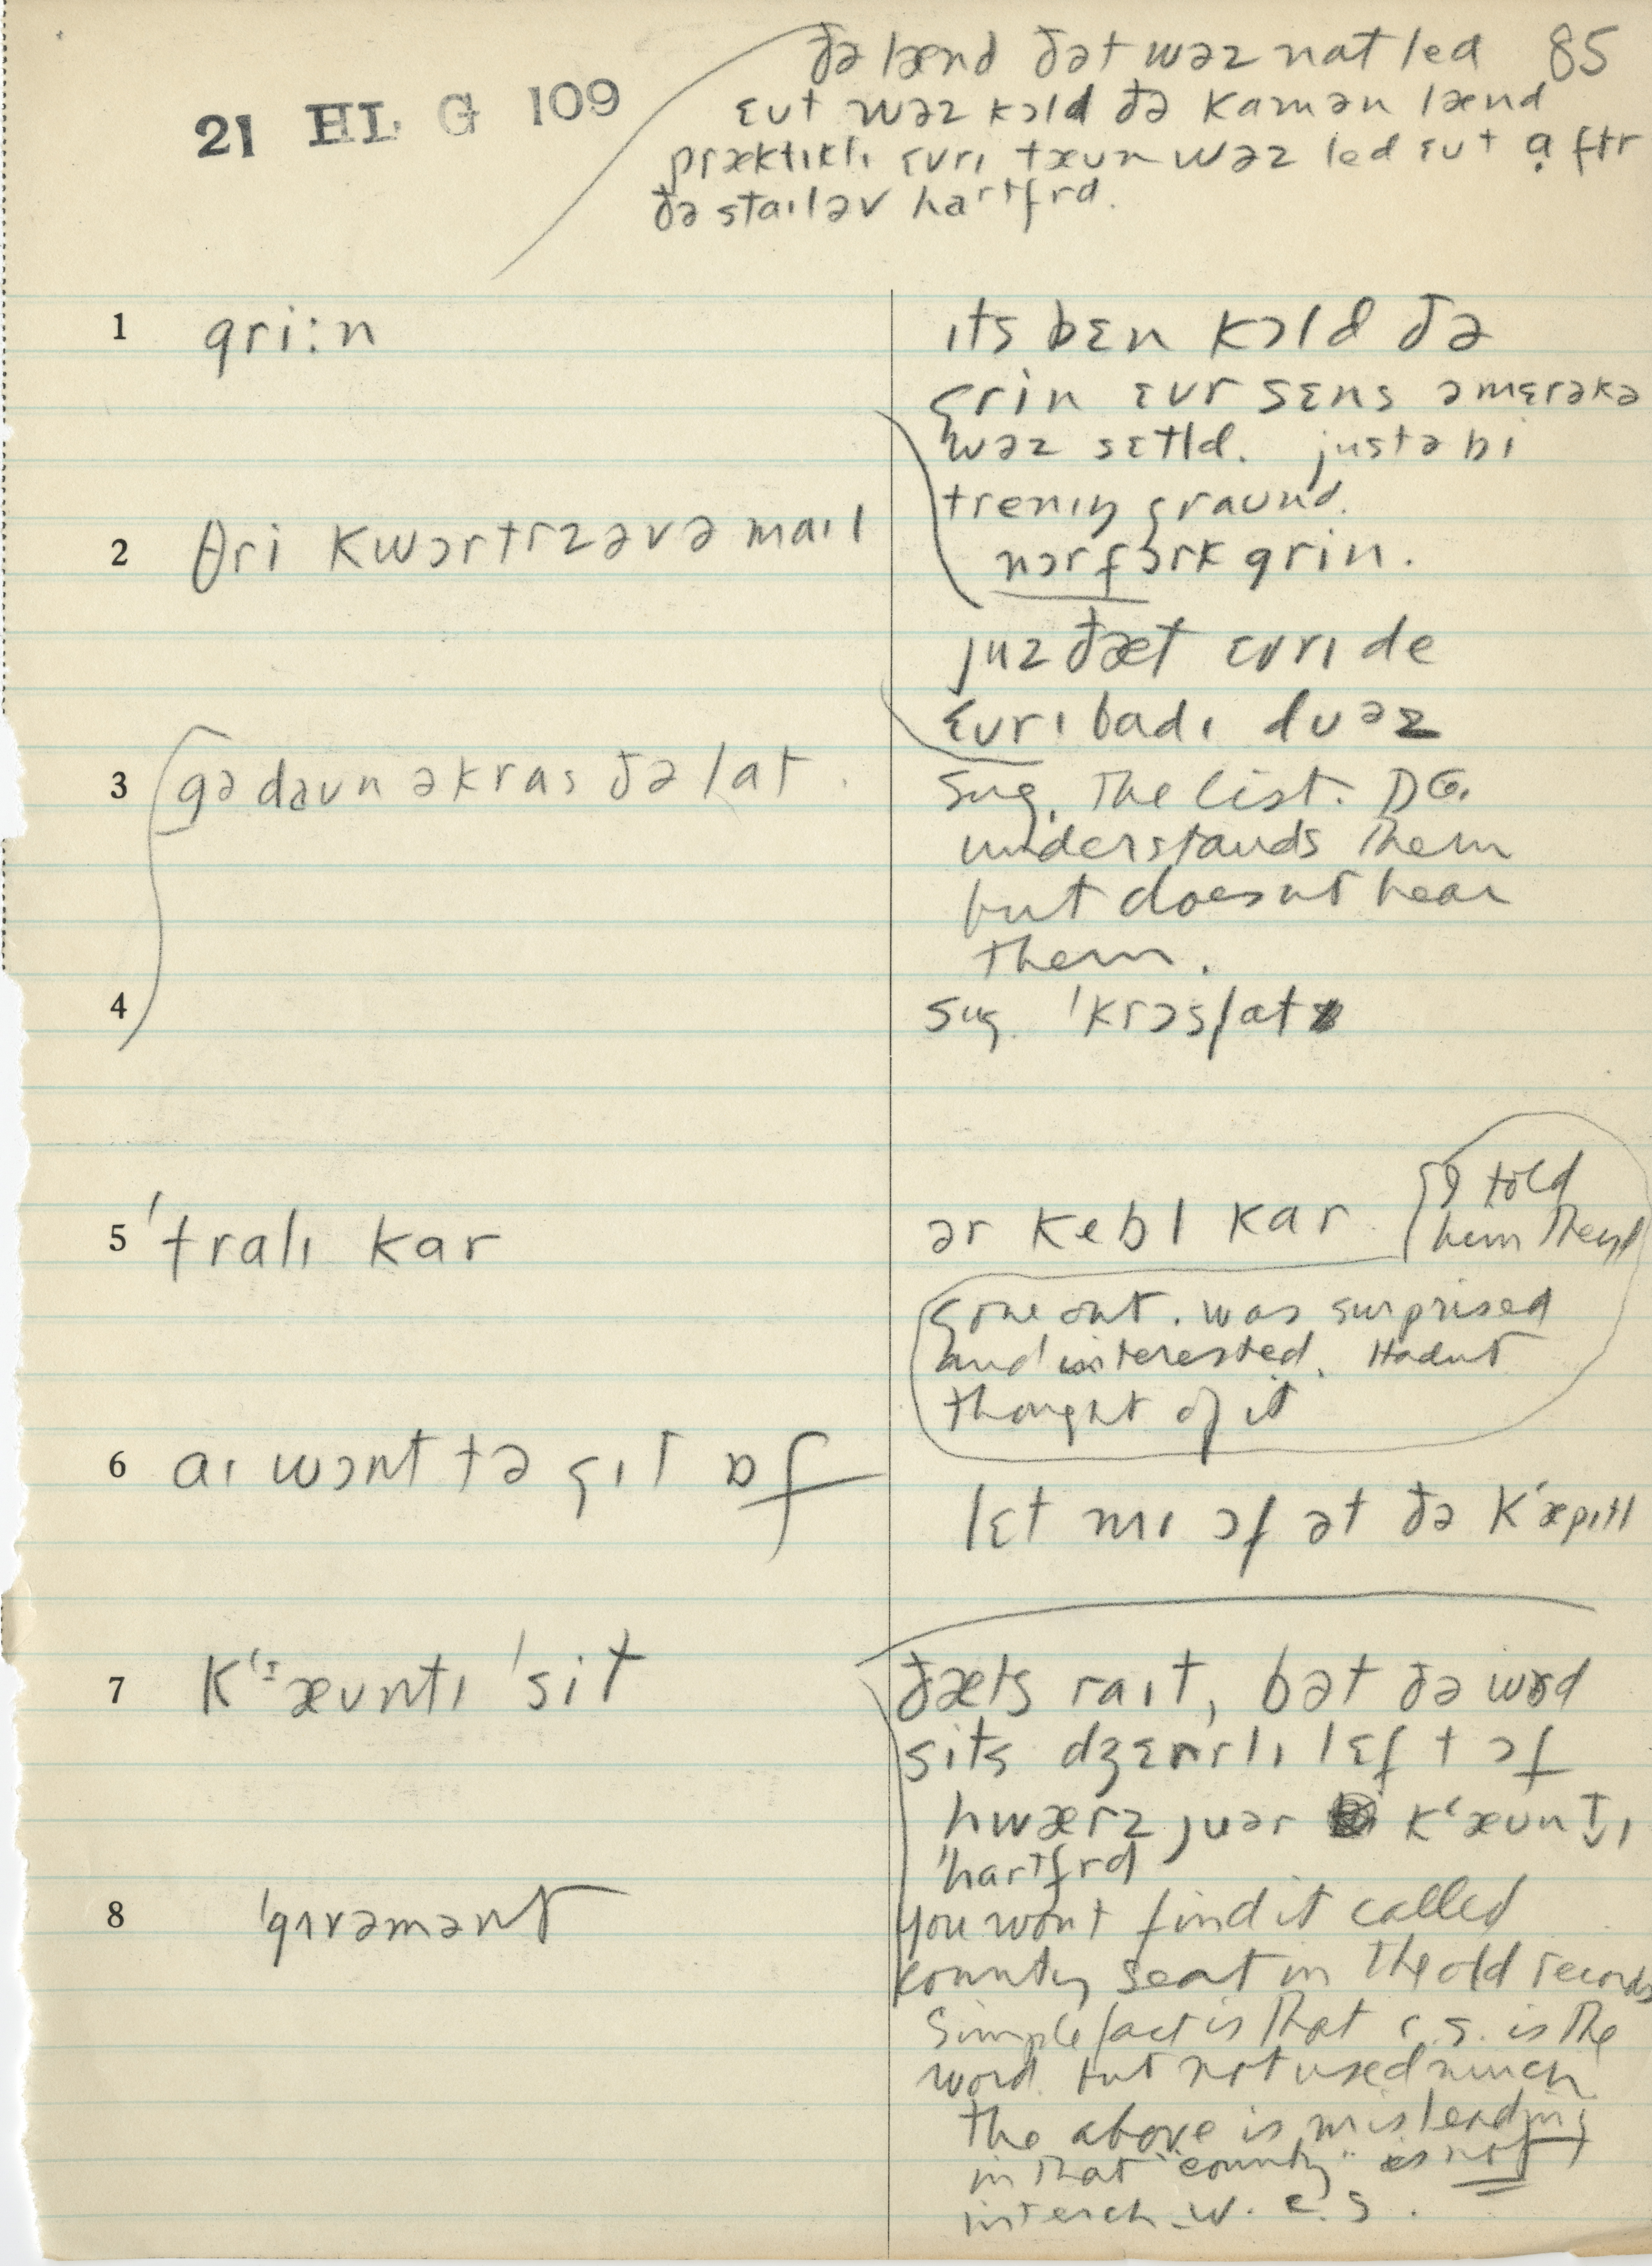 ðə lænd ðət wəz nat led 85
21 HL G 109
ɛut wəz kɔld ðə kamən lænd
præktɪklɪ ɛvrɪ tæun wəz led ɛut aftr
ðə staɪl əv hartfrd.
1 gri:n
ɪts bɛn kɔld ðə
grin ɛvr sɛns əmɛrəkə
wəz sɛtld. justə bi
trenɪŋ graund.
2 θri kwɔrtrz əv ə maɪl
nɔrfɔrk grin.
juz ðæt ɛvrɪ de
ɛvrɪbadɪ duəz
3 gə daun əkras ðə lat.
sug. The list. DG.
understands them
but doesnt hear
them.
4 sug. 'krɔslat
5 'tralɪ kar
ər kebl kar
I told
him they'd
gone out. was surprised
and interested. Hadnt
thought of it
6 aɪ wɔnt tə gɪt ɒf
lɛt mɪ ɔf ət ðə k'æpɪtl
7 k'ɪæuntɪ 'sit
ðæts raɪt, bət ðə wrd
sits dʒɛnrlɪ lɛft ɔf
hwærz juər k'æuntɪ
'hartfrd
8 'gɪvəmənt
you wont find it called
county seat in the old records
Simple fact is that c.s. is the
word but not used much
the above is misleading
in that "county" is not
interch. w. c. s.